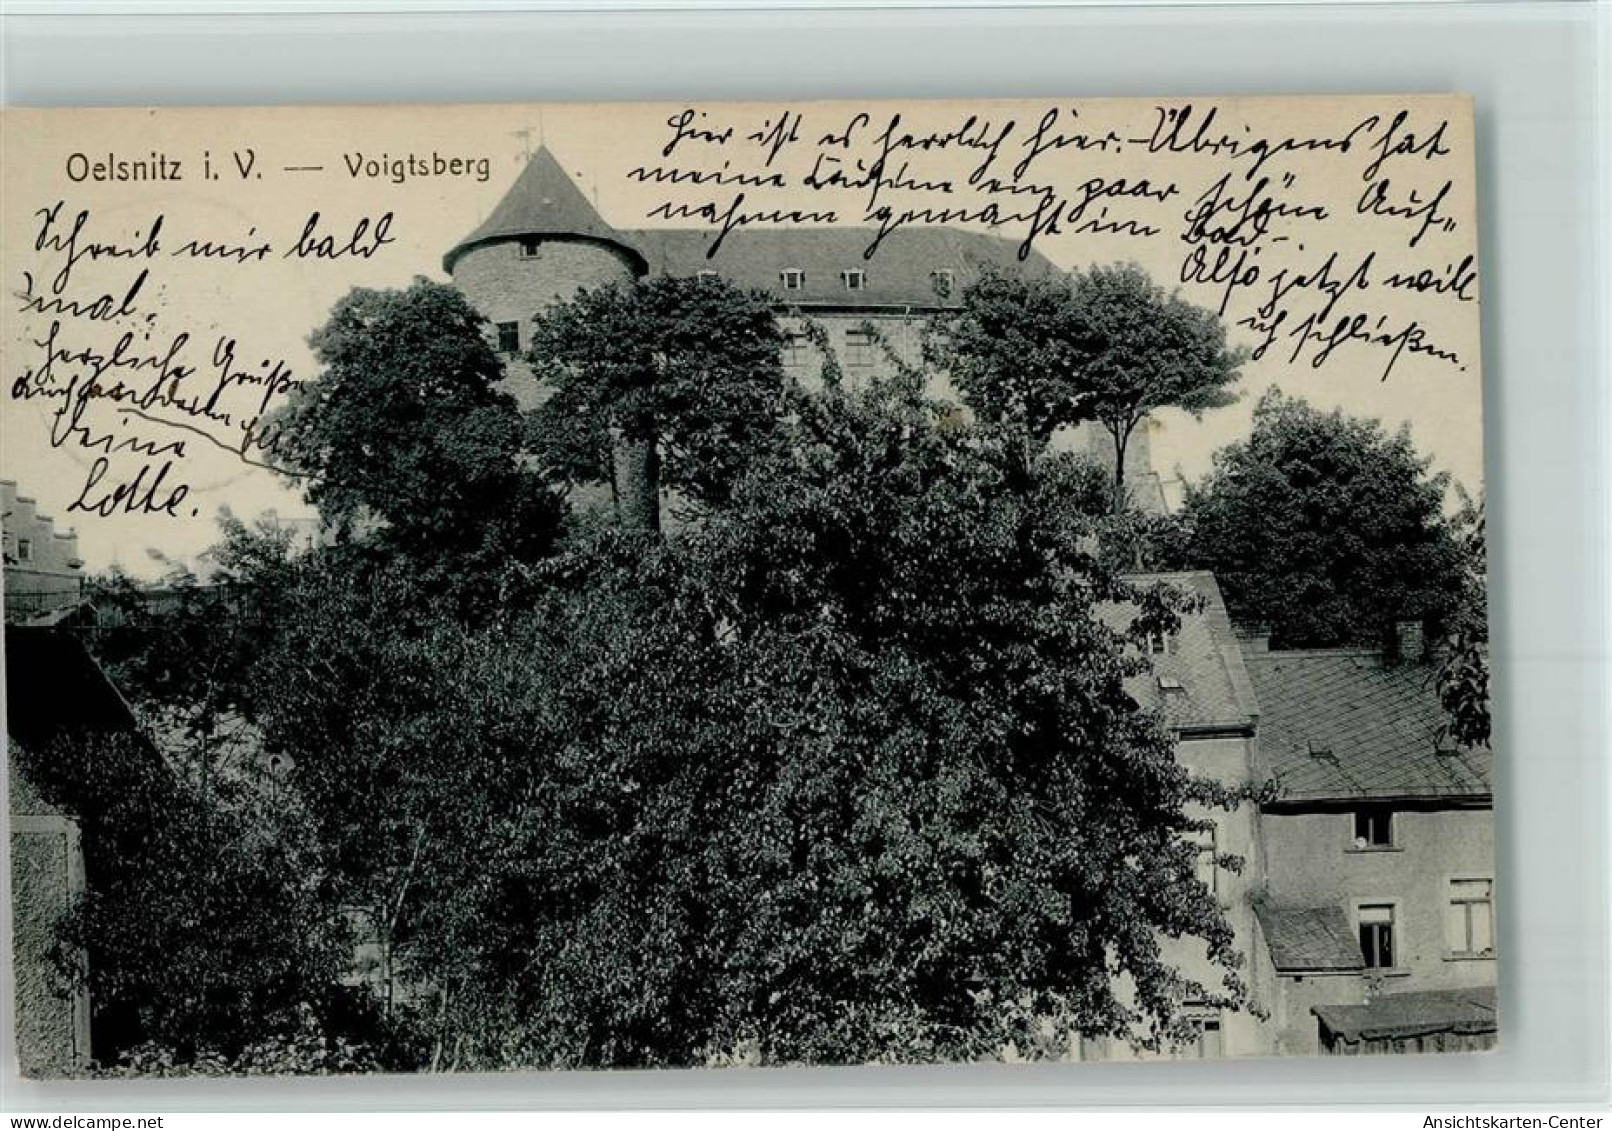 Oelsnitz i. V. — Voigtsberg
Hier ist es herrlich hier. – Übrigens hat
meine Cousine ein paar schöne Auf„
nahmen gemacht im Bad. –
Also jetzt will
ich schließen.
Schreib mir bald
mal.
Herzliche Grüße
auch
Deine
Lotte.
oldthing
Ansichtskarten-Center